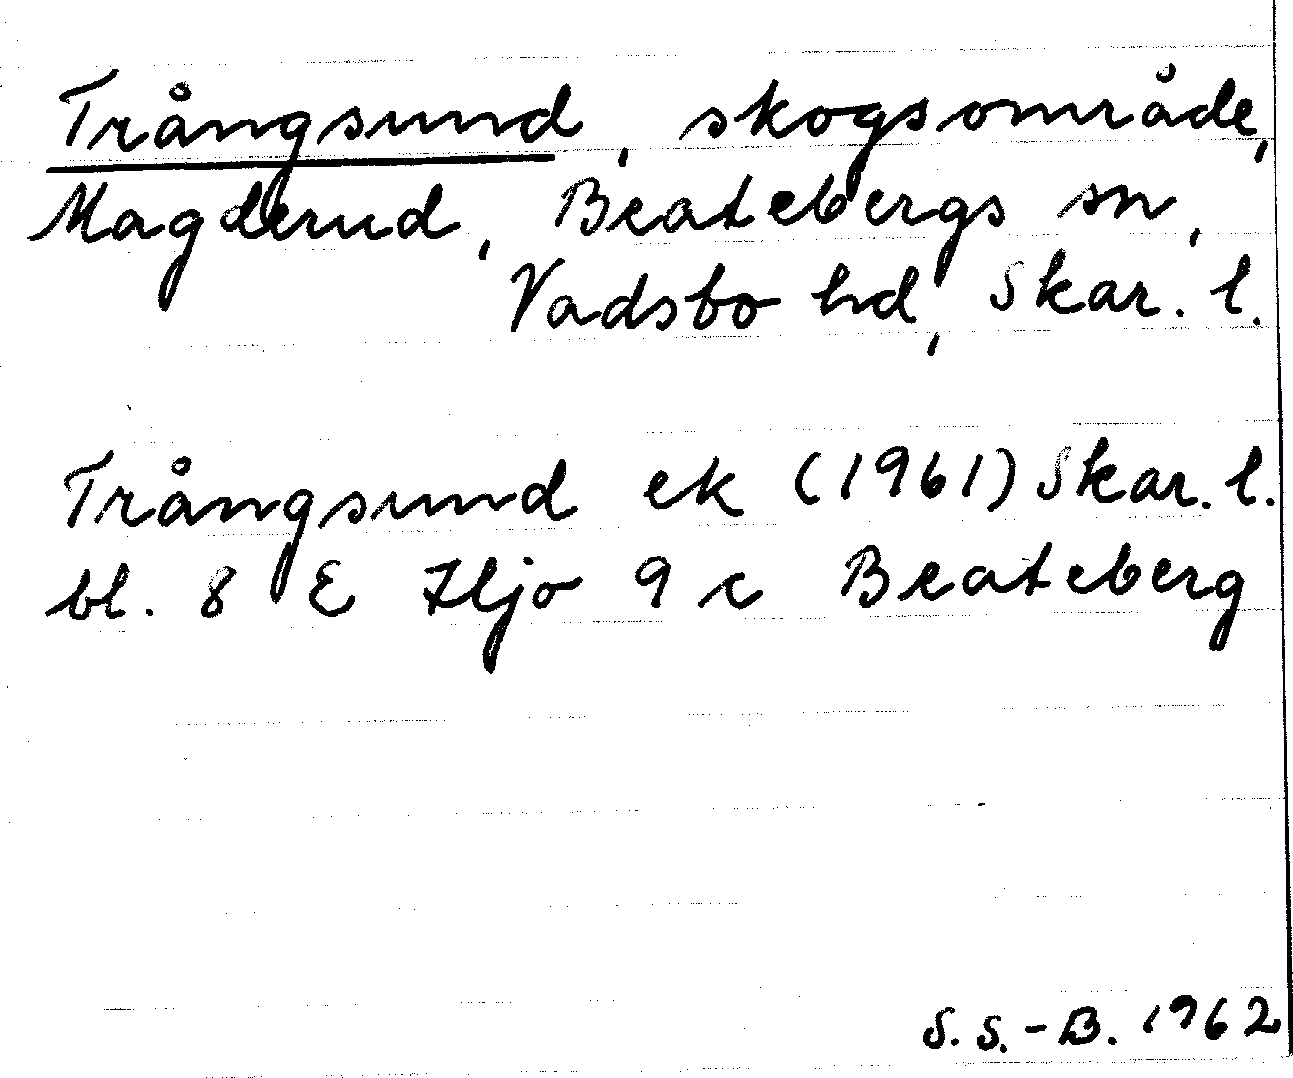 Trångsund, skogsområde,
Magderud, Beatebergs sn,
Vadsbo hd, Skar. l.
Trångsund ek (1961) Skar. l.
bl. 8 E Hjo 9 c Beateberg
S. S.-B. 1962